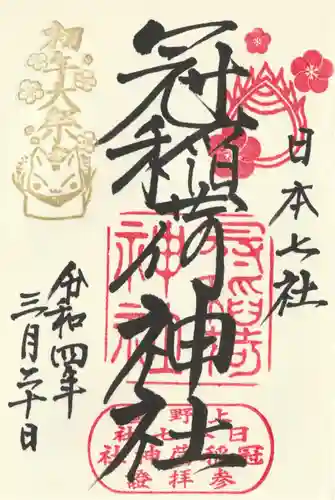 日本七社
冠稲荷神社
初午大祭
令和四年
三月二十日
上野
日本七社
冠稲荷神社
参拝證